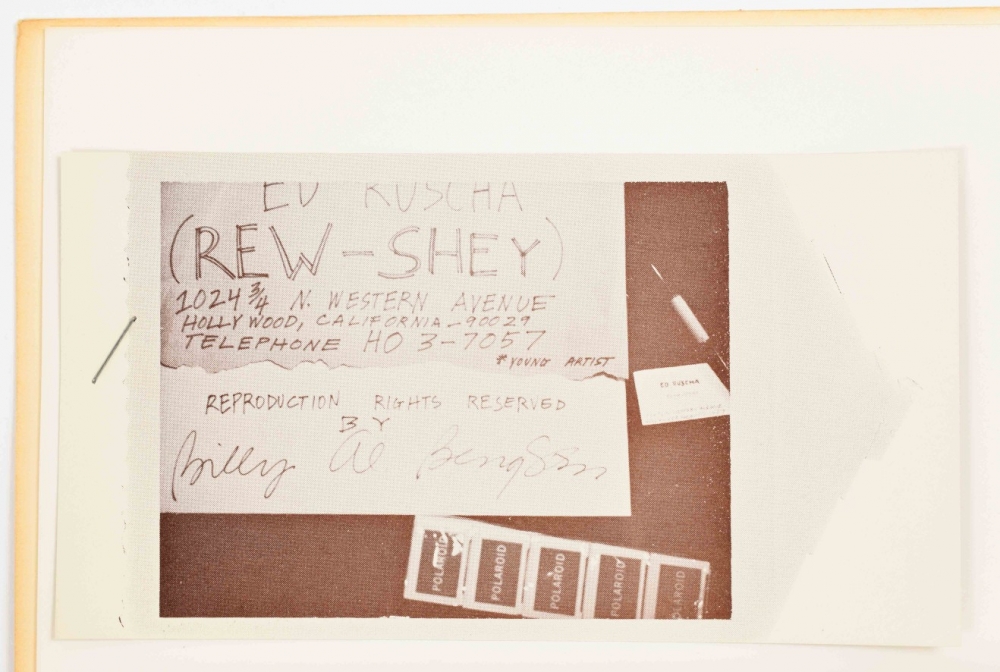 ED RUSCHA
(REW-SHEY)
1024 3/4 N. WESTERN AVENUE
HOLLYWOOD, CALIFORNIA-90029
TELEPHONE HO 3-7057
*YOUNG ARTIST
REPRODUCTION RIGHTS RESERVED
BY
Billy Al Bengston
ED RUSCHA
POLAROID
POLAROID
POLAROID
POLAROID
POLAROID